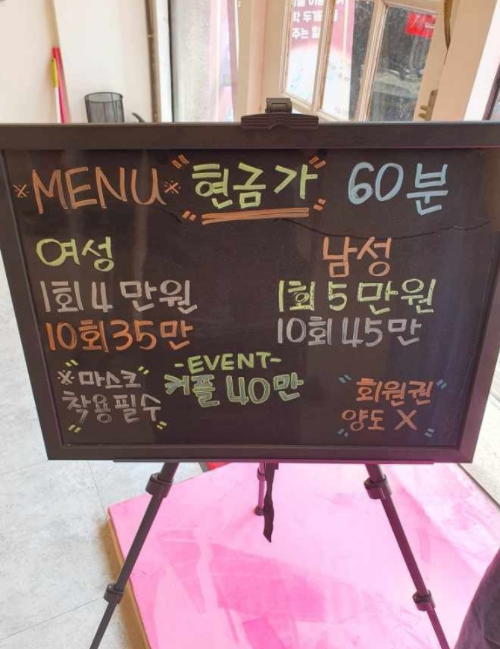 ※MENU※ "현금가" 60분
여성
1회 4만원
10회 35만
남성
1회 5만원
10회 45만
"※마스크
착용필수"
-EVENT-
커플 40만
"회원권
양도 X"